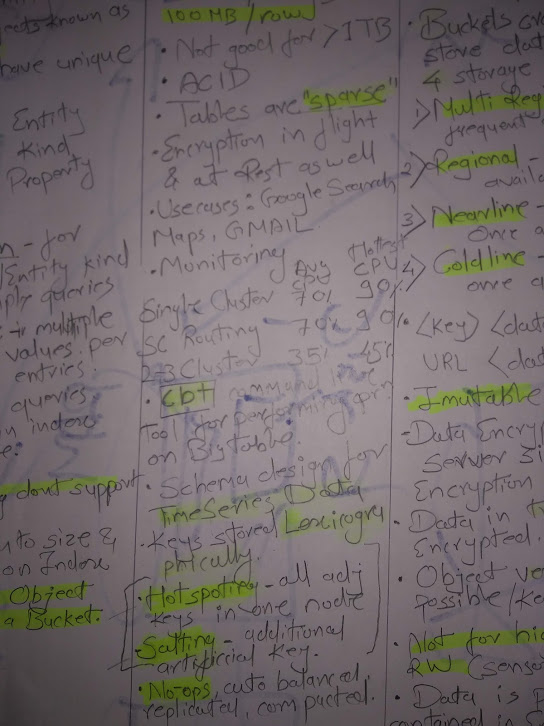 ects known as
have unique
Entity
Kind
Property
n - for
/Entity kind
queries
multiple
values per
entries.
queries.
n index
dont support
to size &
on Index
Object
a Bucket.
100MB/row
• Not good for > 1TB
• ACID
• Tables are "sparse"
• Encryption in flight
& at Rest as well
• Usecases: Google Search,
Maps, GMAIL.
• Monitoring
Avg CPU Hottest CPU
Single Cluster 70% 90%
SC Routing - 70% 90%
2-3 Cluster 35% 45%
• cbt command line
Tool for performing opr.
on Bigtable.
• Schema design for
TimeSeries Data
• Keys stored Lexicogra
phically
• Hotspoting - all adj
keys in one node
Salting - additional
artificial key.
• No-ops, auto balanced,
replicated, compacted.
• Buckets are
store
4 storage
1) Multi Reg
frequent
2) Regional -
availa
3) Nearline -
Once a
4) Coldline -
once a
• <key> <dat
URL <dat
• Imutable
- Data Encry
Server Si
Encryption
• Data in t
Encrypted.
• Object ve
possible/ke
• Not for hi
RW (senso
• Data is
contained in